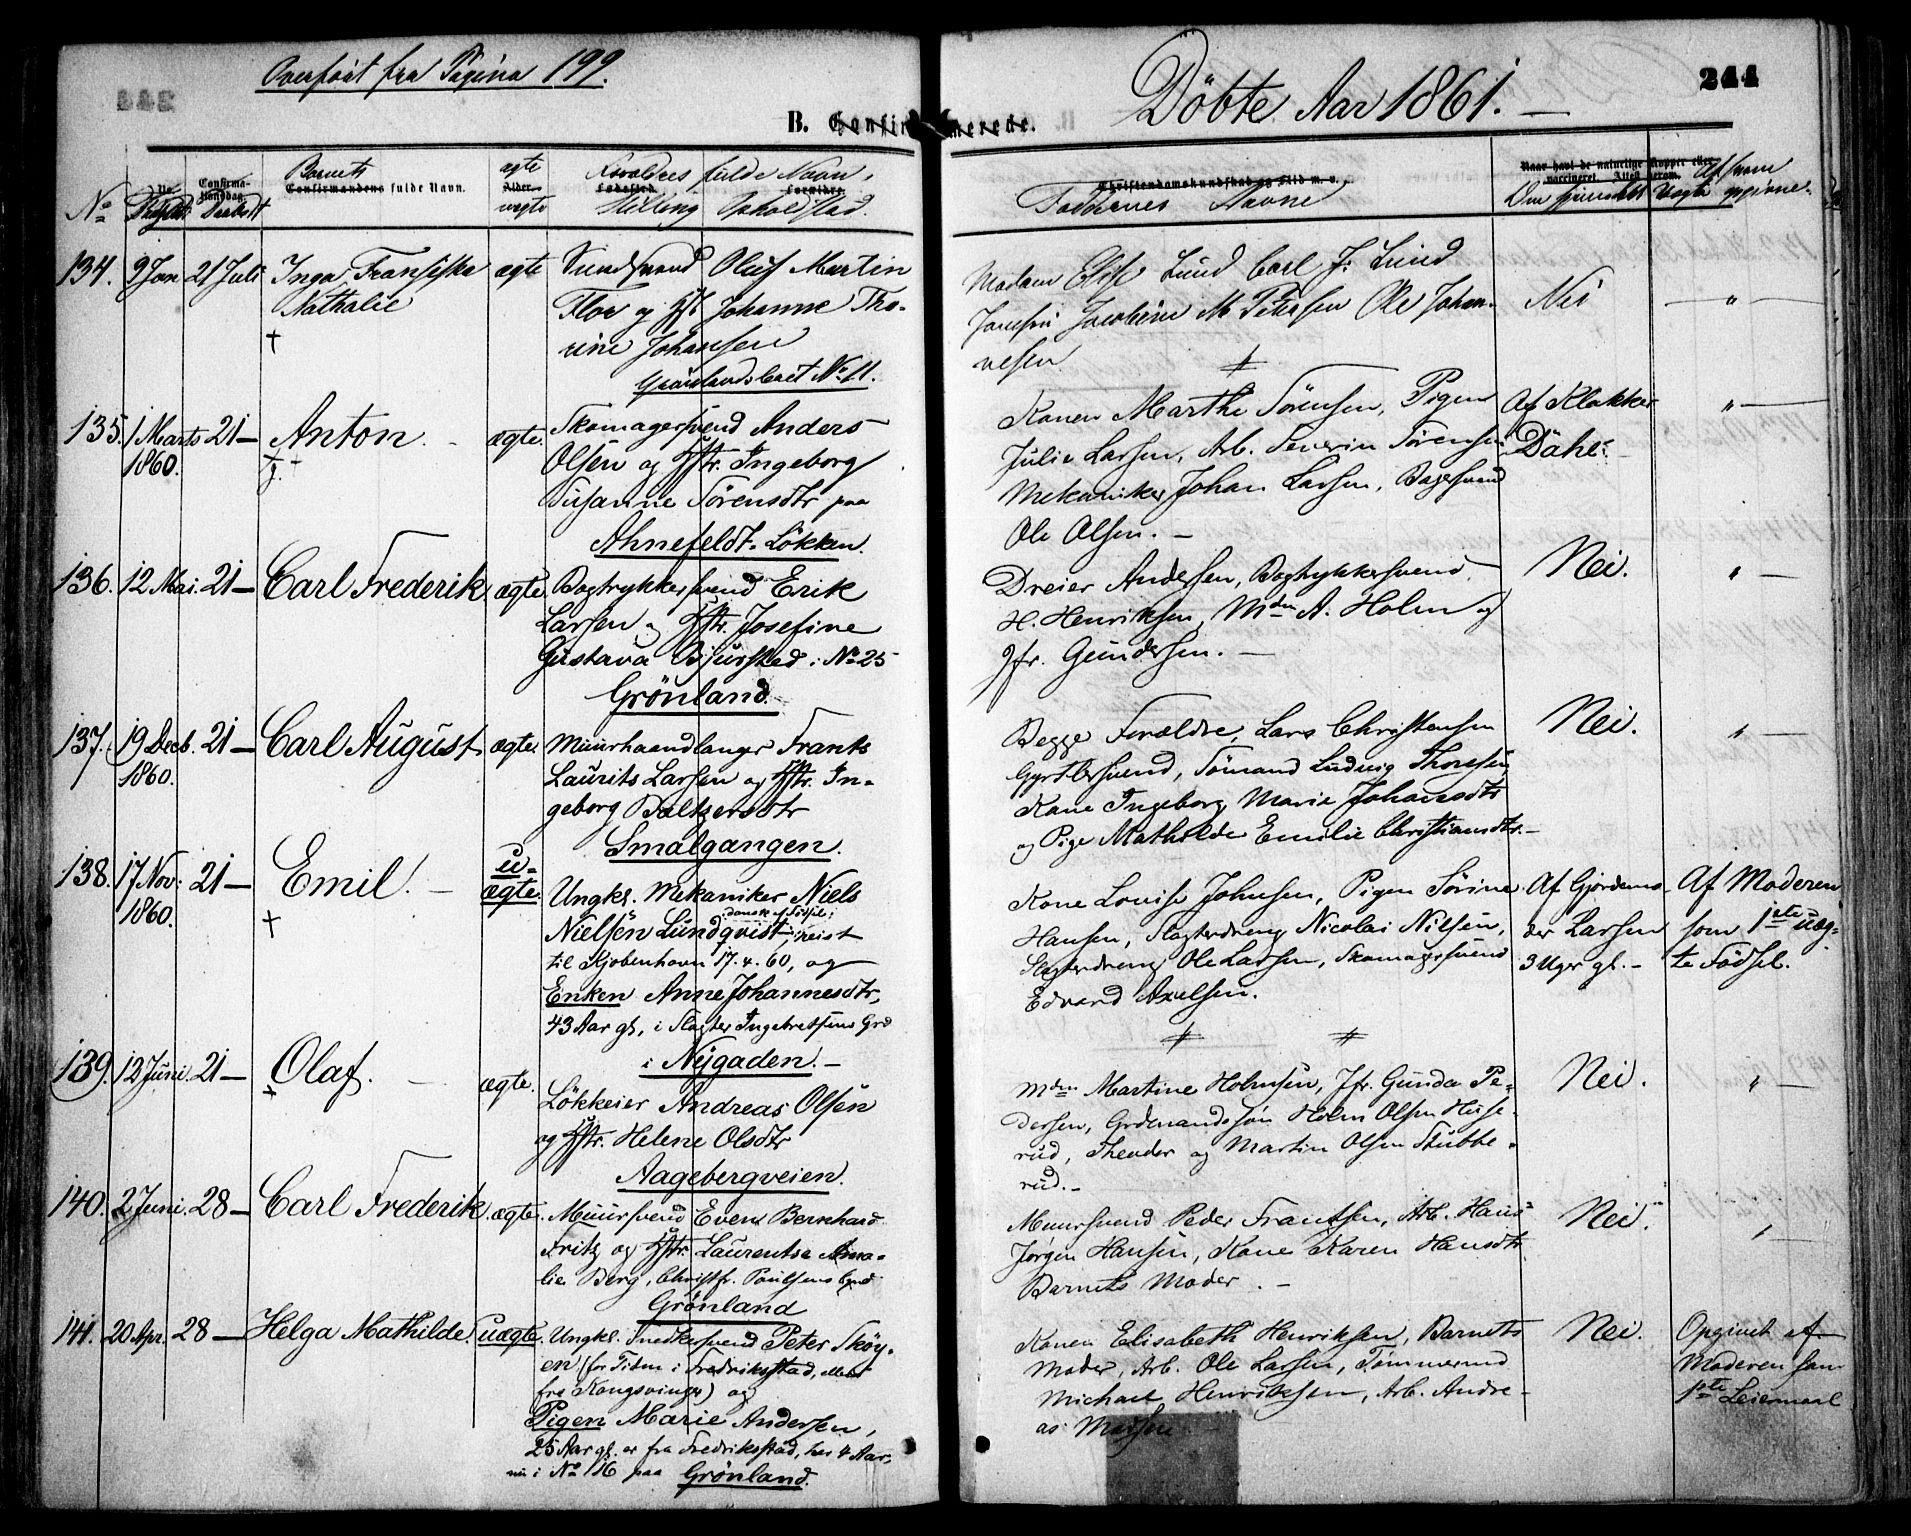 Overført fra Pagina 199.
Döbte Aar 1861.
244
B. Confirmerede.
No
Födselst
Confirma-
tionsdag.
Daabsdt
Barnets
Confirmandens fulde Navn.
ægte
Alder.
uægte
Forældres fulde Navn,
Stilling Opholdsted.
Faddernes Navne
Naar havt de naturlige Kopper eller
vaccineret. Attest herom.
Om hjemedöbt
134. 9 Jan 21 Juli Inga Fransiska ægte Olaf Martin
Nathalie
Flor og Hst Johanne Tho-
rine Johansen
Grönlandsleret No 11.
Madam Else Lund Carl J. Lund
Jacobine M. Petersen Ole Johan-
nesen
Nei
135. 1 Marts 21 — Anton. ægte. Skomagersvend Anders
1860.
Olsen og Hstr. Ingeborg
Susanne Sörensdtr paa
Ahnefeldt-Lökken.
Konen Marthe Sörensen, Pigen
Julie Larsen, Arb. Severin Sörensen
Mekaniker Johan Larsen, Bagersvend
Ole Olsen. —
Af Klokker
Dahl
136. 12 Mai. 21 — Carl Frederik. ægte. Bogtrykkersvend Erik
Larsen og Hstr. Josefine
Gustava Bjursted i No 25
Grönland.
Dreier Andersen, Bogtrykkersvend
H. Henriksen, Mdm A. Holm og
Jfr. Gundersen. —
Nei.
137. 19 Decb. 21 — Carl August ægte. Muurhaandlanger Frants
1860.
Laurits Larsen og Hstr. In-
geborg Baltzersdtr
Smalgangen.
Begge Forældre, Lars Christensen
Gyrtlersvend, Sömand Ludvig Thoresen,
Kone Ingeborg Marie Johansdtr
og Pige Mathilde Emilie Christiansdtr. —
Nei.
138. 17 Nov: 21 — Emil. — u-
1860.
ægte. Ungkl. Mekaniker Niels
Nielsen Lundqvist, (dansk af Födsel) reist
til Kjöbenhavn 17.4.60, og
Enken Anne Johannesdtr,
43 Aar gl., i Slagter Ingebretsens Grd
i Nygaden. —
Kone Louise Johnsen, Pigen Sörine
Hansen, Slagterdreng Nicolai Nilsen,
Slagterdreng Ole Larsen, Skomagersvend
Edvard Axelsen.
Af Gjordemo-
der Larsen
3 Uger gl. —
Af Moderen
som 1ste uæg-
te Födsel.
139. 12 Juni. 21 — Olaf. ægte.
Lökkeier Andreas Olsen
og Hstr. Helene Olsdtr
Aagebergveien.
Mdm Martine Holmsen, Jfr. Gunda Pe-
dersen, Grdmandssön Holm Olsen Huse-
rud, Theodor og Martin Olsen Stubbe-
rud. —
Nei.
140. 2 Juni. 28 — Carl Frederik. ægte. Muursvend Even Bernhard
Fritz og Hstr. Laurentse Ama-
lie Berg, Christfr. Paulsens Grd
Grönland
Muursvend Peder Frantsen, Arb. Hans
Jörgen Hansen, Kone Karen Hansdtr
Barnets Moder. —
Nei.
141. 20 Apr. 28 — Helga Mathilde. uægte. Ungkl. Snedkersvend Peter Sköy-
en (for Tiden i Fredriksstad, ellers
fra Kongsvinger) og
Pigen Marie Andersen,
25 Aar gl. er fra Fredriksstad, her 4 Aar,
nu i No 16 paa Grönland.
Konen Elisabeth Henriksen, Barnets
Moder, Arb. Ole Larsen, Tömmermd
Michael Henriksen, Arb. Andre-
as
Nei.
Opgivet af
Moderen som
1ste Leiermaal